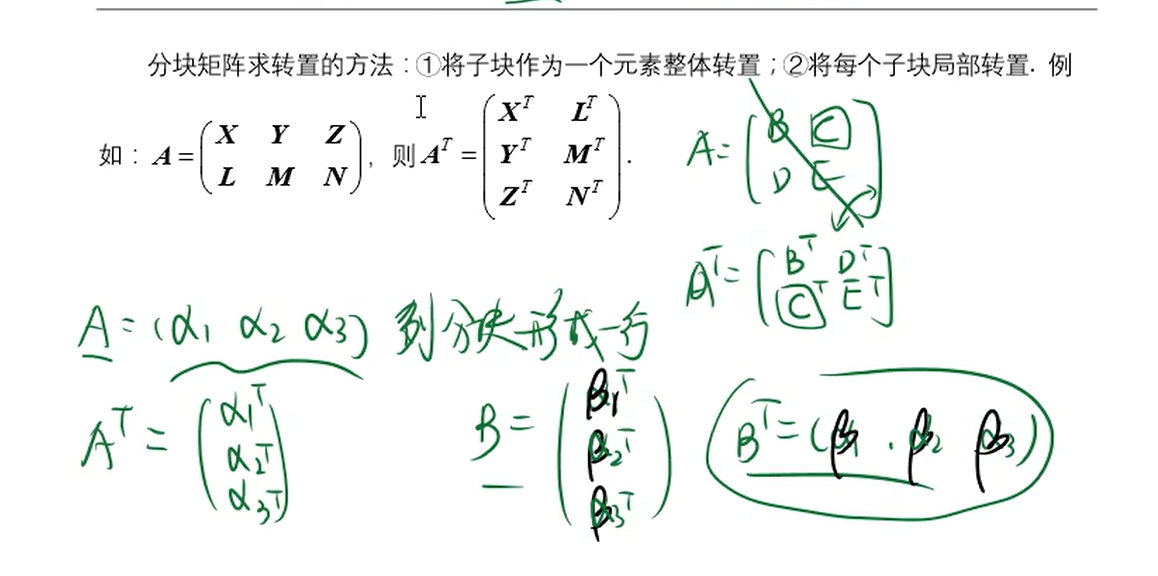 分块矩阵求转置的方法：①将子块作为一个元素整体转置；②将每个子块局部转置. 例
如： A = (X Y Z
L M N)，则 A^T = (X^T L^T
Y^T M^T
Z^T N^T).
A = [B C
D E]
A^T = [B^T D^T
C^T E^T]
A = (α1 α2 α3) 列分块形成一行
A^T = (α1^T
α2^T
α3^T)
B = (β1^T
β2^T
β3^T)
B^T = (β1 . β2 β3)